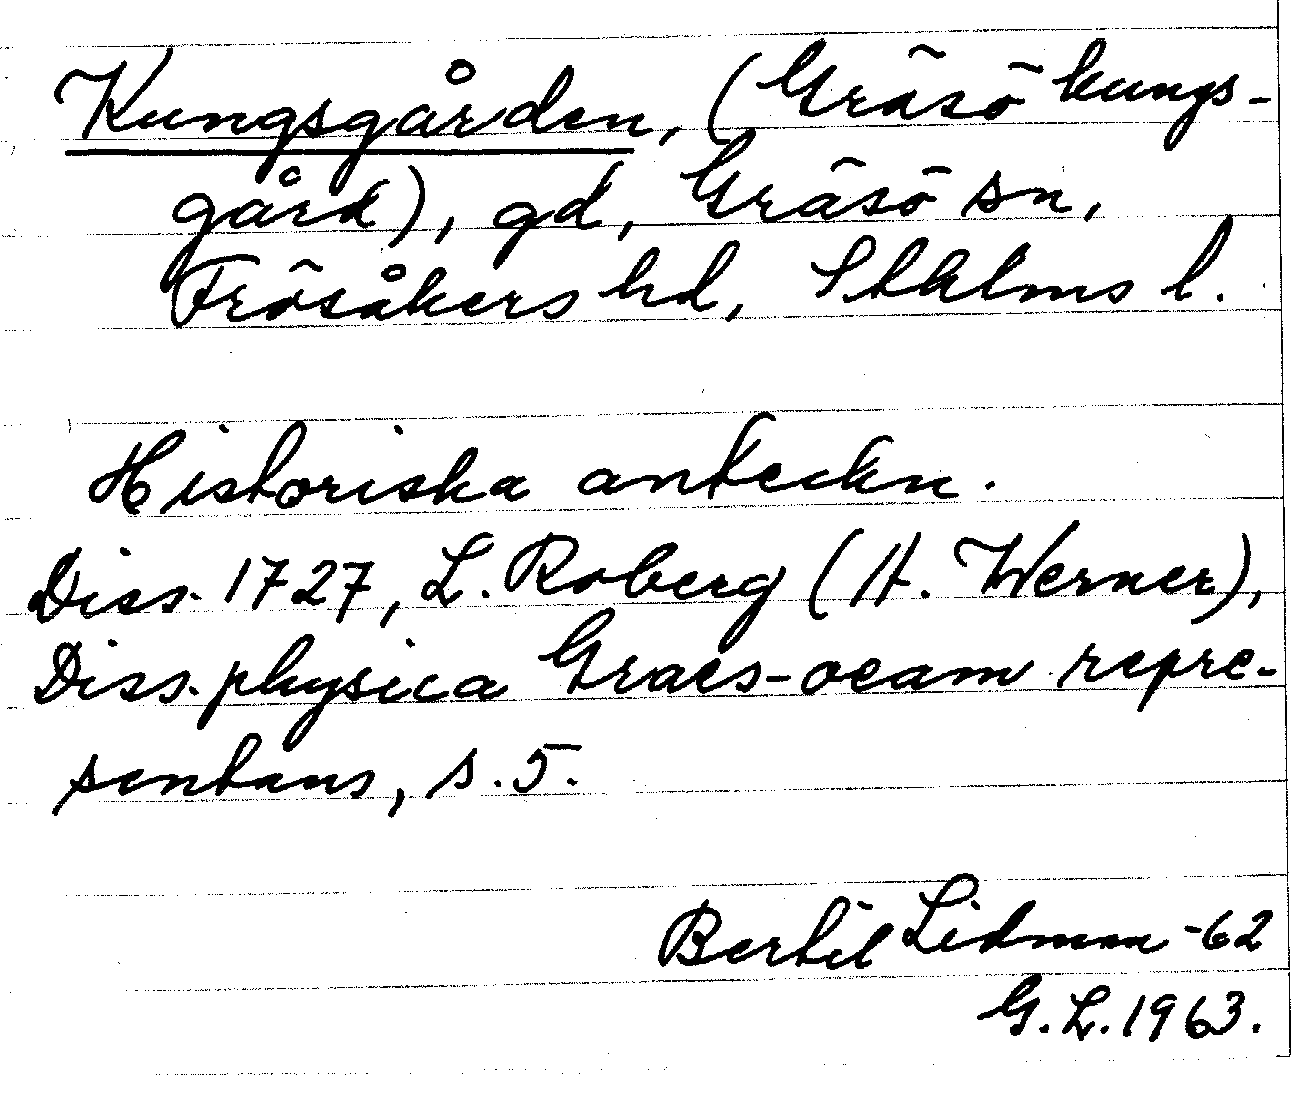 Kungsgården, (Gräsö kungs-
gård), gd, Gräsö sn,
Frösåkers hd, Sthlms l.
Historiska anteckn.
Diss. 1727, L. Roberg (H. Werner),
Diss. physica Graes-oeam repre-
sentans, s. 5.
Bertil Lidman -62
G. L. 1963.